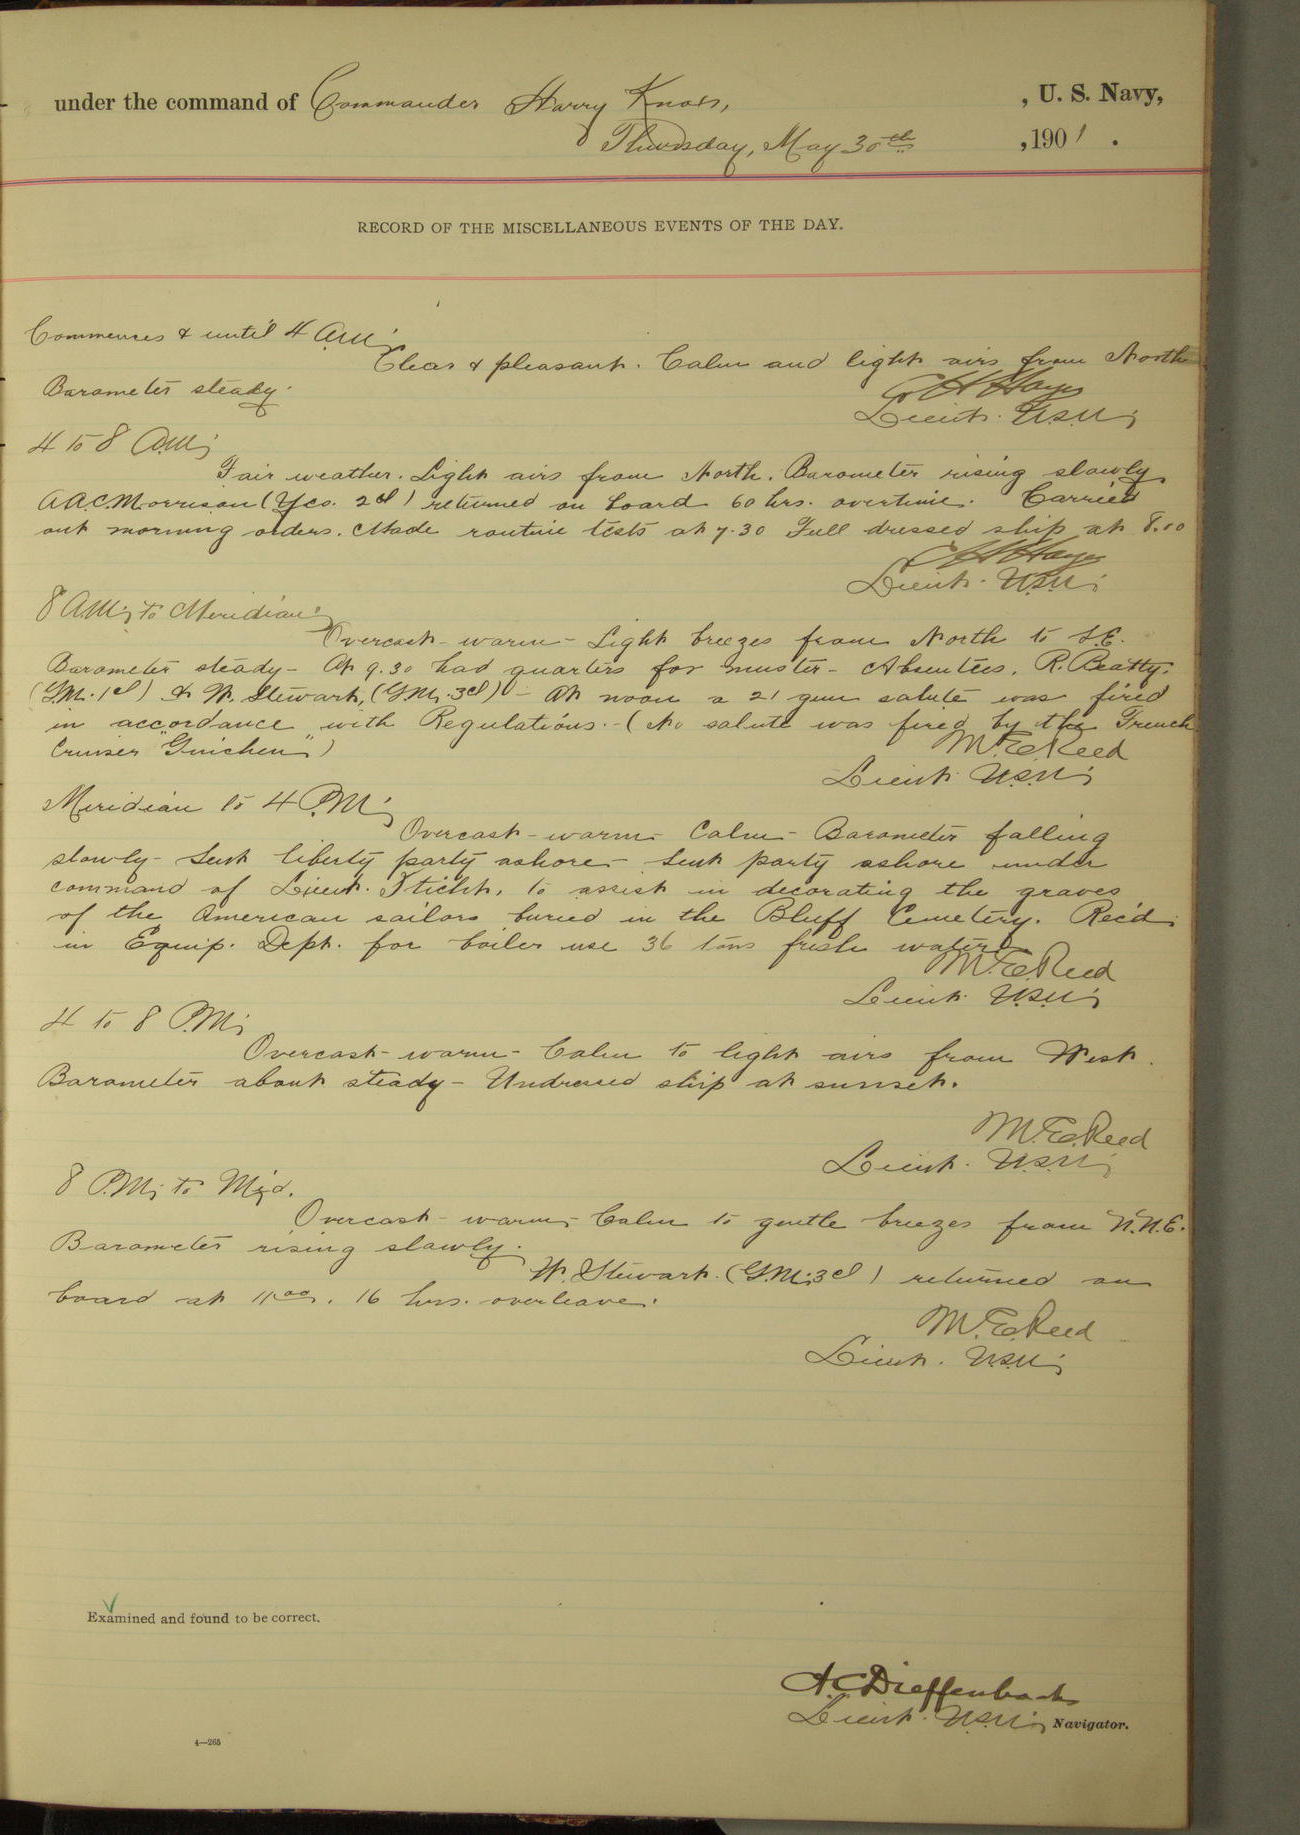 under the command of Commander Harry Knox, , U. S. Navy,
Thursday, May 30th ,1901 .
RECORD OF THE MISCELLANEOUS EVENTS OF THE DAY.
Commences & until 4 A.M.;
Clear & pleasant. Calm and light airs from North
Barometer steady.
C H Hayes
Lieut. U.S.N;
4 to 8 A.M;
Fair weather. Light airs from North. Barometer rising slowly
A.A.C. Morrison (Yeo. 2cl) returned on board 60 hrs. overtime. Carried
out morning orders. Made routine tests at 7.30 Full dressed ship at 8.00
C H Hayes
Lieut. U.S.N;
8 A.M; to Meridian;
Overcast - warm - Light breezes from North to S.E.
Barometer steady - At 9.30 had quarters for muster - Absentees, R. Beatty,
(G.M. 1cl) & W. Stewart, (G.M. 3cl) - At noon a 21 gun salute was fired
in accordance with Regulations. - (No salute was fired by the French
Cruiser "Guichen")
M. E. Reed
Lieut. U.S.N;
Meridian to 4 P.M;
Overcast - warm - Calm - Barometer falling
slowly - Sent liberty party ashore - Sent party ashore under
command of Lieut. Sticht, to assist in decorating the graves
of the American sailors buried in the Bluff Cemetery. Rec'd
in Equip. Dept. for boiler use 36 tons fresh water.
M. E. Reed
Lieut. U.S.N;
4 to 8 P.M;
Overcast - warm - Calm to light airs from West.
Barometer about steady - Undressed ship at sunset.
M. E. Reed
Lieut. U.S.N;
8 P.M; to Mid.
Overcast - warm - Calm to gentle breezes from N.N.E.
Barometer rising slowly.
W. Stewart. (G.M. 3cl) returned on
board at 11 00. 16 hrs. overleave.
M. E. Reed
Lieut. U.S.N;
Examined and found to be correct.
A. C. Dieffenbach
Lieut. U.S.N; Navigator.
4—265